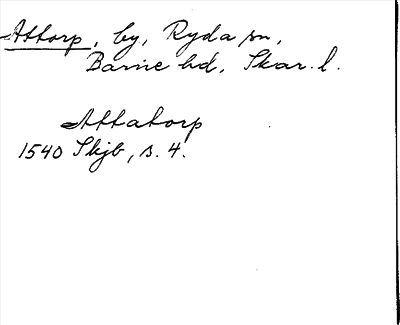 Attorp, by, Ryda sn,
Barne hd, Skar. l.
Attatorp
1540 Skjb, s. 4.